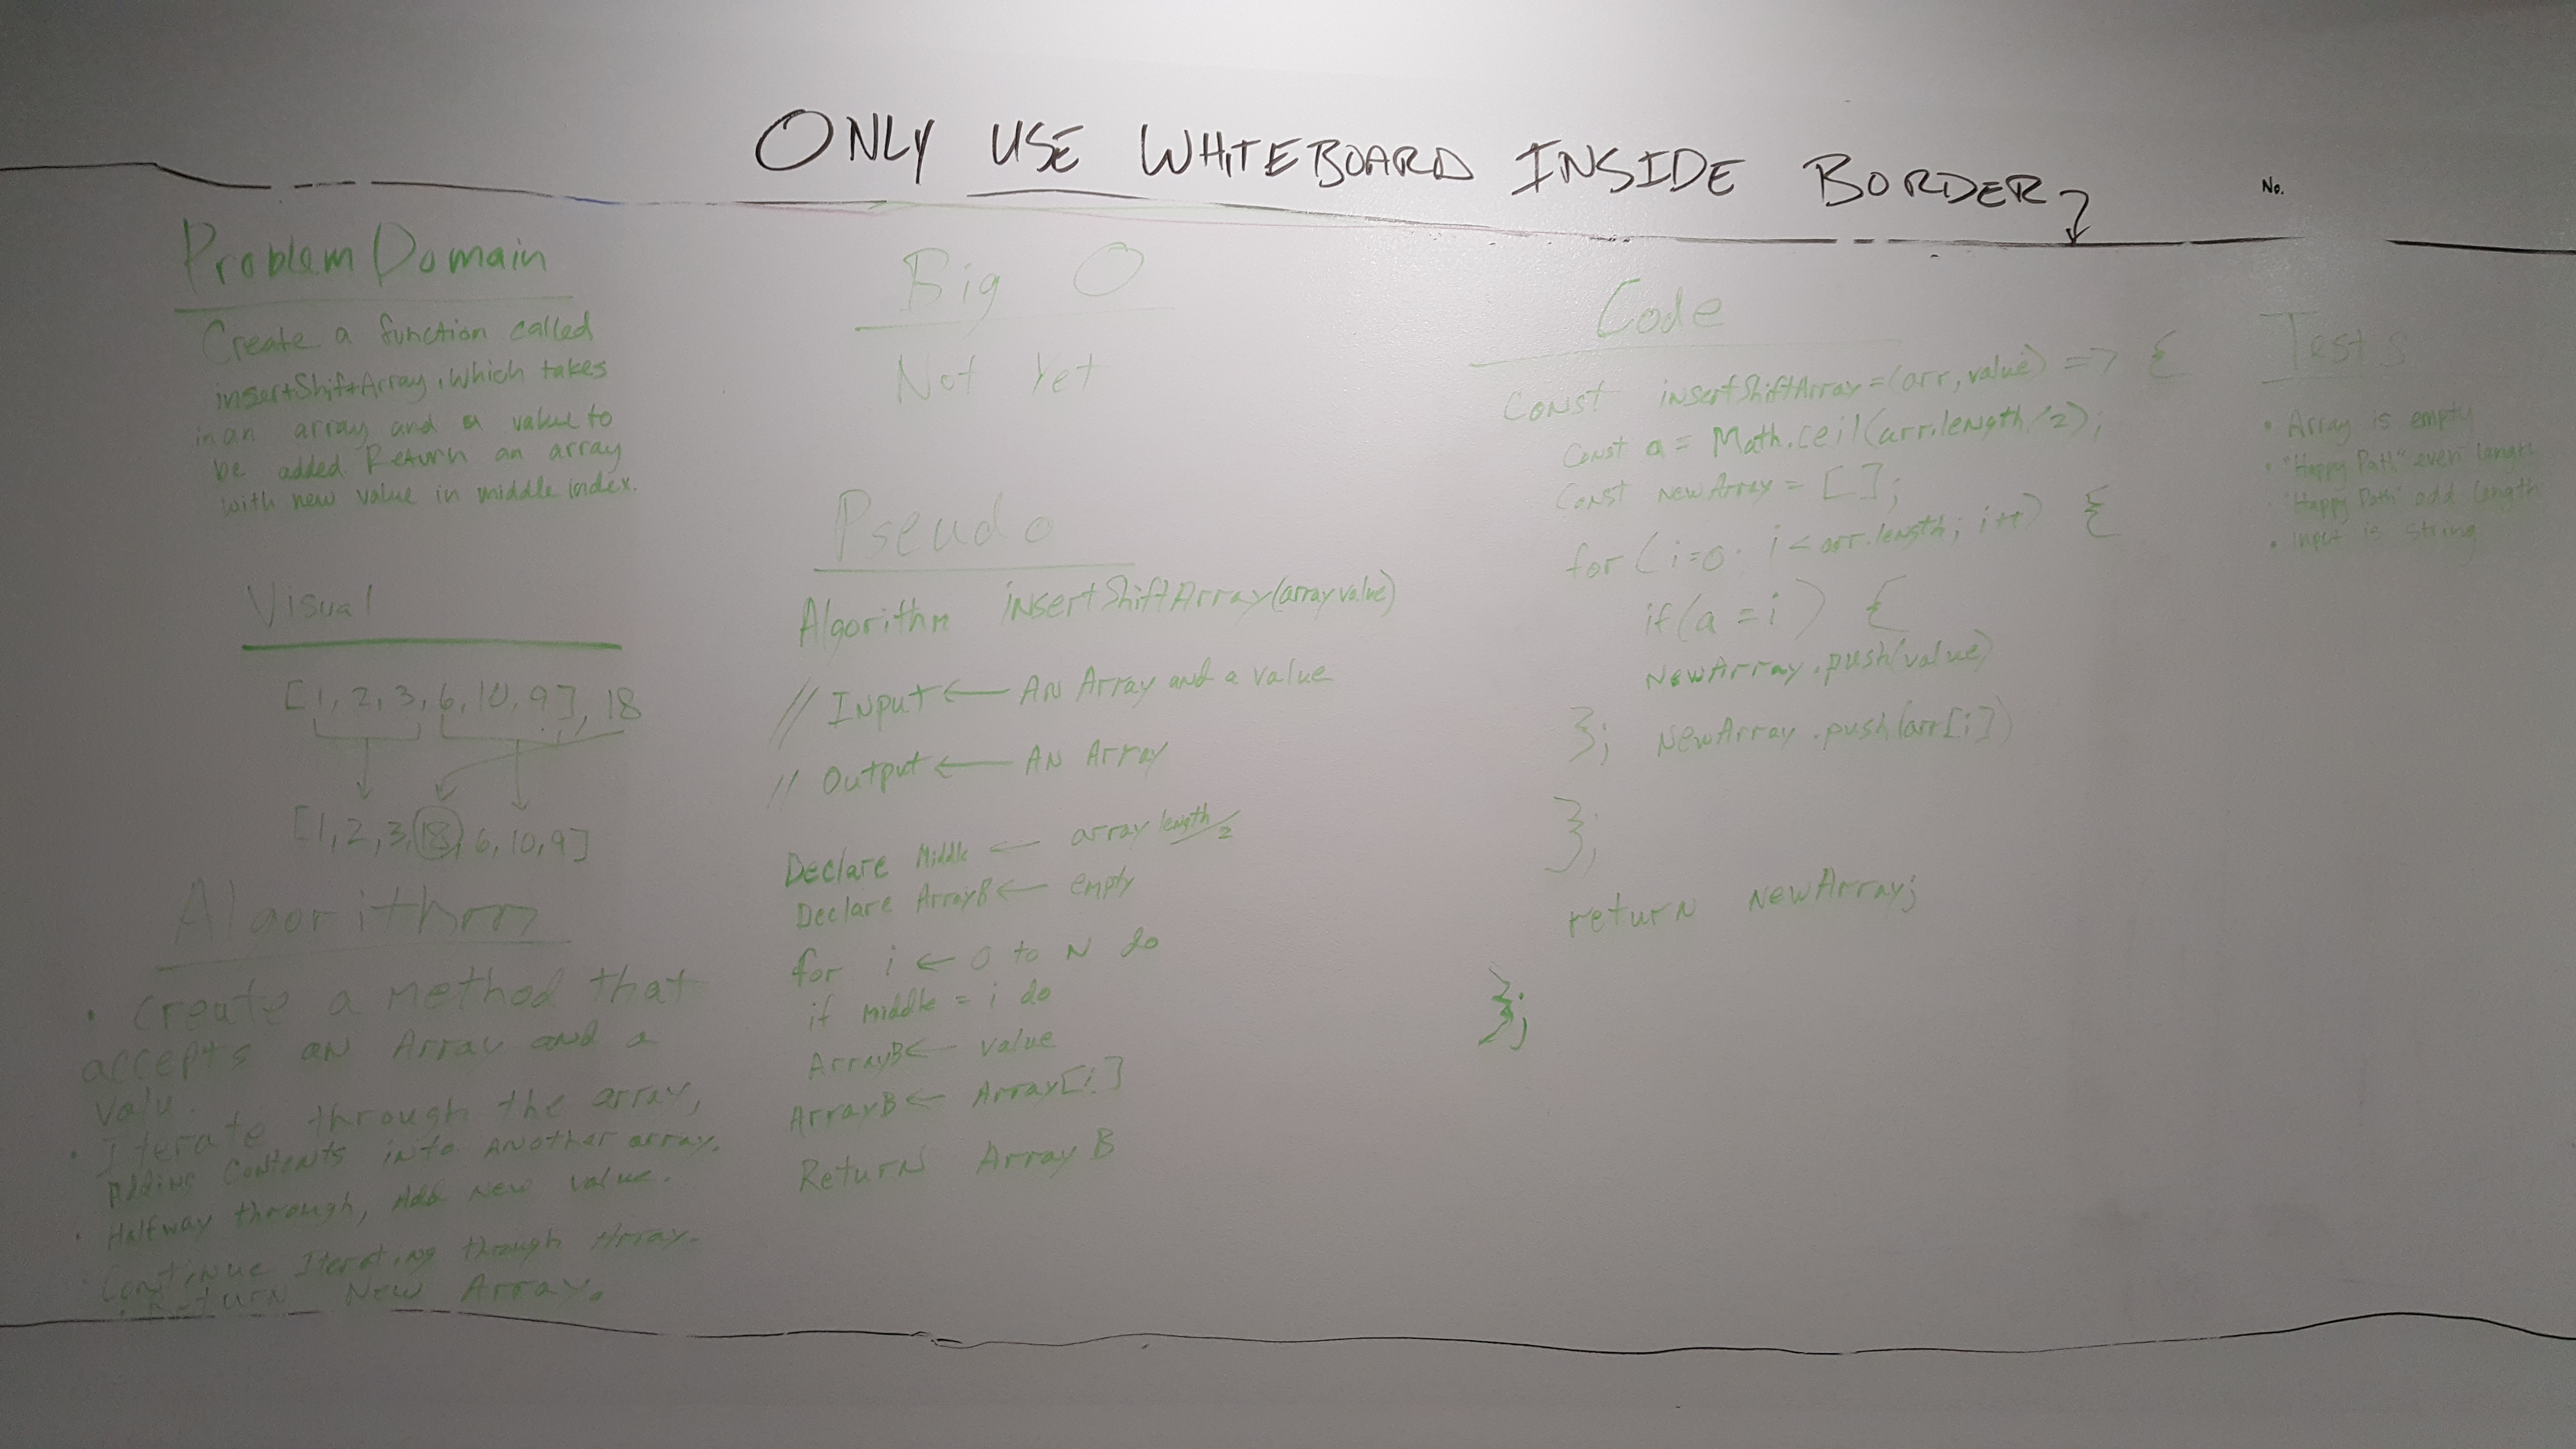 ONLY USE WHITEBOARD INSIDE BORDER
No.
Problem Domain
Create a function called
insertShiftArray, which takes
in an array and a value to
be added Return an array
with new value in middle index.
Visual
[1, 2, 3, 6, 10, 9], 18
[1, 2, 3, 18, 6, 10, 9]
Algorithm
• Create a method that
accepts an Array and a
valu.
• Iterate through the array,
Adding contents into another array.
• Halfway through, Add new value.
• Continue Iterating through Array.
• Return New Array.
Big O
Not Yet
Pseudo
Algorithm insertShiftArray(array value)
// Input ← An Array and a value
// Output ← An Array
Declare Middle ← array length/2
Declare ArrayB ← empty
for i ← 0 to N do
if middle = i do
ArrayB ← value
ArrayB ← Array[i]
Return Array B
Code
Const insertShiftArray = (arr, value) => {
Const a = Math.ceil(arr.length/2);
Const newArray = [];
for (i=0; i < arr.length; i++) {
if (a = i) {
NewArray.push(value)
}; NewArray.push(arr[i])
};
return NewArray;
};
Tests
• Array is empty
• "Happy Path" even length
"Happy Path" odd length
• Input is string